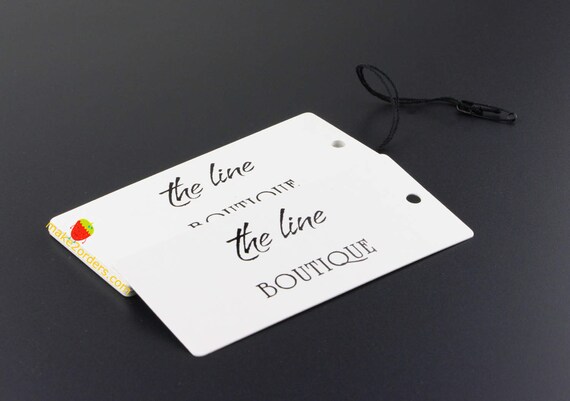 the line
BOUTIQUE
the line
BOUTIQUE
make2orders.com